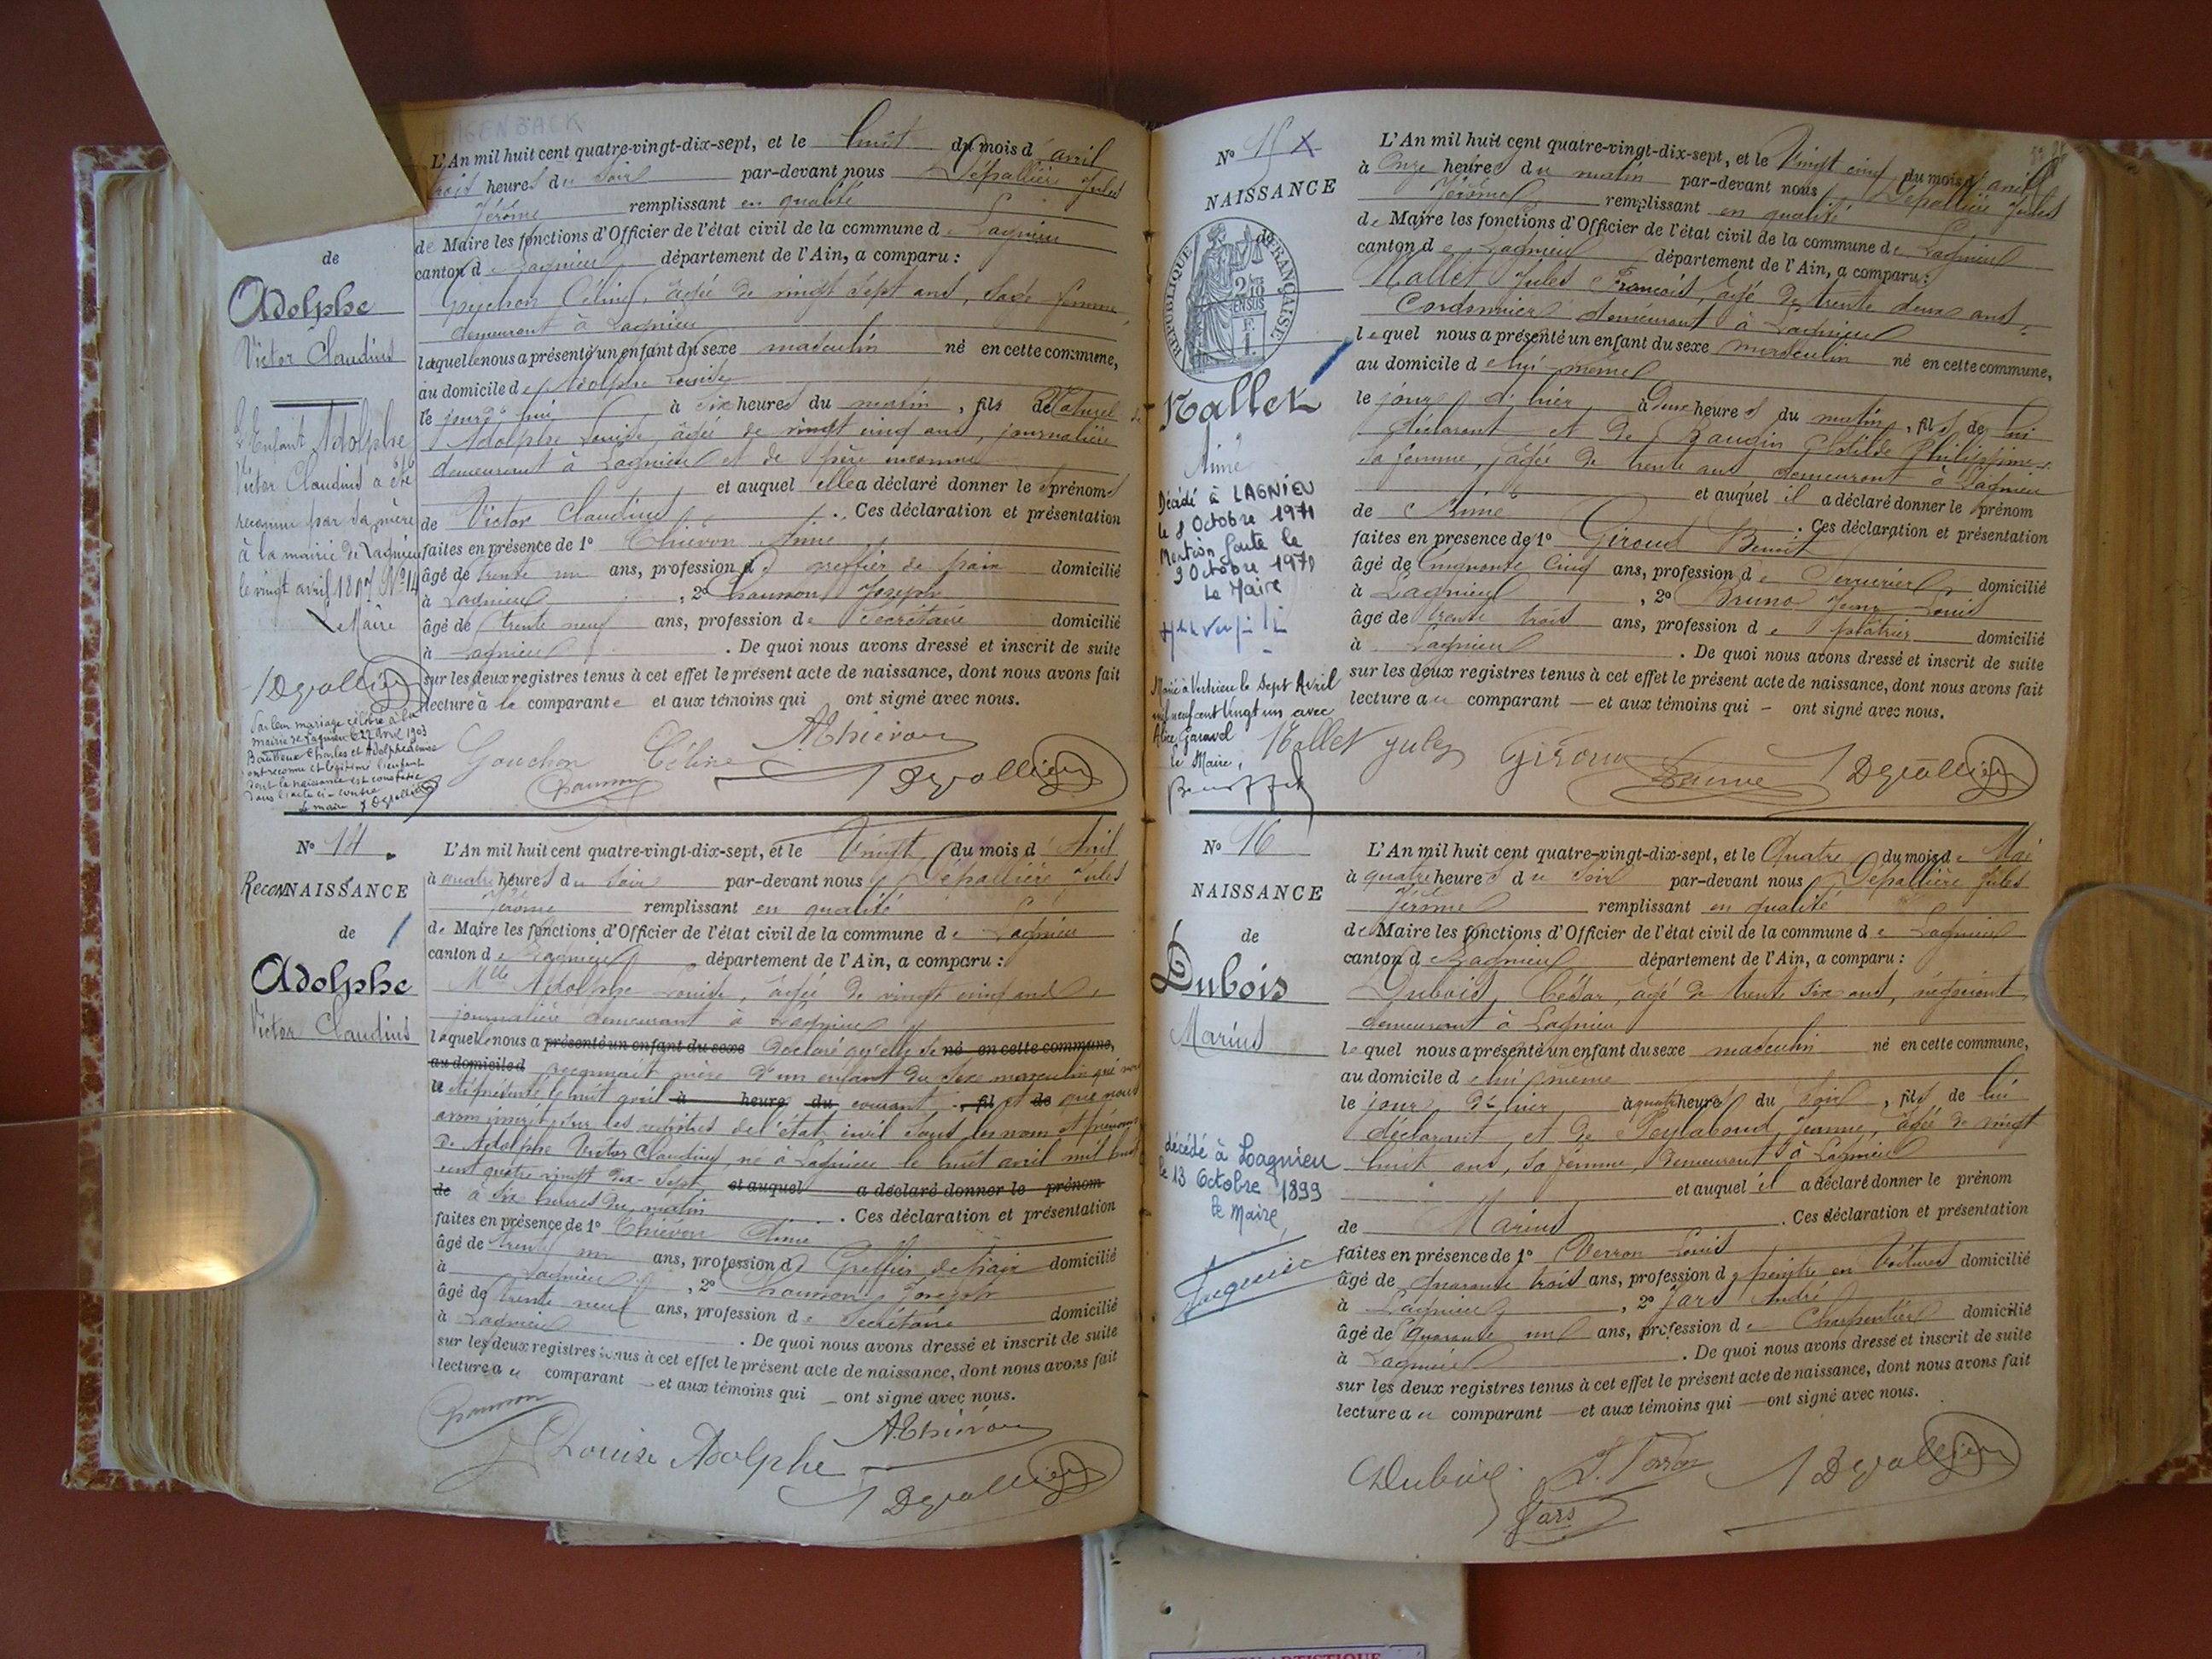 HAGENBACK
L'An mil huit cent quatre-vingt-dix-sept, et le huit du mois d'avril
trois heures du soir par-devant nous Dépallière Jules
Jérôme remplissant en qualité
de Maire les fonctions d'Officier de l'état civil de la commune de Lagnieu
canton de Lagnieu département de l'Ain, a comparu :
Céline, âgée de vingt sept ans, sage femme
demeurant à Lagnieu
laquelle nous a présenté un enfant du sexe masculin né en cette commune,
au domicile de Adolphe Louise
le jour d'hui à six heures du matin, fils Naturel de
Adolphe Louise, âgée de vingt cinq ans, journalière
demeurant à Lagnieu et de père inconnu
et auquel elle a déclaré donner les prénoms
de Victor Claudius. Ces déclaration et présentation
faites en présence de 1° Thiévon Aimé
âgé de trente un ans, profession de greffier de paix domicilié
à Lagnieu, 2° Chaumon Joseph
âgé de trente neuf ans, profession de Secrétaire domicilié
à Lagnieu. De quoi nous avons dressé et inscrit de suite
sur les deux registres tenus à cet effet le présent acte de naissance, dont nous avons fait
lecture à la comparante et aux témoins qui ont signé avec nous.
Gouchon Céline A. Thiévon
Chaumon J Depallière
de
Adolphe
Victor Claudius
L'Enfant Adolphe
Victor Claudius a été
reconnu par sa mère
à la mairie de Lagnieu
le vingt avril 1897 N° 14
Le Maire
J Depallière
Par leur mariage célébré à la
mairie de Lagnieu le 22 avril 1903
Charles et Adolphe Louise
ont reconnu et légitimé l'enfant
dont la naissance est constatée
dans l'acte ci-contre
Le maire J Depallière
N° 14.
ReconNAISSANCE
de
Adolphe
Victor Claudius
L'An mil huit cent quatre-vingt-dix-sept, et le Vingt du mois d'Avril
à quatre heures du soir par-devant nous Dépallière Jules
Jérôme remplissant en qualité
de Maire les fonctions d'Officier de l'état civil de la commune de Lagnieu
canton de Lagnieu département de l'Ain, a comparu :
Mlle Adolphe Louise, âgée de vingt cinq ans,
journalière demeurant à Lagnieu
laquelle nous a présenté un enfant du sexe déclaré qu'elle se né en cette commune,
au domicile d reconnait mère d'un enfant du sexe masculin qui
le présenté le huit avril à heure du courant, fil et de que nous
avons inscrit sur les registres de l'état civil sous les nom et prénoms
De Adolphe Victor Claudius, né à Lagnieu le huit avril mil huit
cent quatre vingt dix-sept et auquel a déclaré donner le prénom
de à six heures du matin. Ces déclaration et présentation
faites en présence de 1° Thiévon Aimé
âgé de trente un ans, profession de Greffier de paix domicilié
à Lagnieu, 2° Chaumon Joseph
âgé de trente neuf ans, profession de Secrétaire domicilié
à Lagnieu. De quoi nous avons dressé et inscrit de suite
sur les deux registres tenus à cet effet le présent acte de naissance, dont nous avons fait
lecture au comparant et aux témoins qui ont signé avec nous.
Chaumon
A. Thiévon
Louise Adolphe
J Depallière
N° 15 X
NAISSANCE
de
RÉPUBLIQUE FRANÇAISE
Nallet
Aimé
Décédé à LAGNIEU
le 8 Octobre 1971
Mention faite le
9 Octobre 1971
Le Maire
Marié à Vertrieu le Sept Avril
mil neuf cent vingt un avec
Alice Garavel
le Maire,
L'An mil huit cent quatre-vingt-dix-sept, et le Vingt cinq du mois d'avril
à onze heures du matin par-devant nous Dépallière Jules
Jérôme remplissant en qualité
de Maire les fonctions d'Officier de l'état civil de la commune de Lagnieu
canton de Lagnieu département de l'Ain, a comparu :
Nallet Jules François, âgé de trente deux ans,
Cordonnier demeurant à Lagnieu
lequel nous a présenté un enfant du sexe masculin né en cette commune,
au domicile de lui-même
le jour d'hier, à heures du matin, fils de lui
déclarant et de Baudin Clotilde Philippine
sa femme, âgée de trente ans demeurant à Lagnieu
et auquel il a déclaré donner le prénom
de Aimé. Ces déclaration et présentation
faites en présence de 1° Giroud Benoit
âgé de Cinquante Cinq ans, profession de Serrurier domicilié
à Lagnieu, 2° Bruno Jean Louis
âgé de trente trois ans, profession de plâtrier domicilié
à Lagnieu. De quoi nous avons dressé et inscrit de suite
sur les deux registres tenus à cet effet le présent acte de naissance, dont nous avons fait
lecture au comparant — et aux témoins qui — ont signé avec nous.
Nallet Jules Giroud Bruno J Depallière
N° 16
NAISSANCE
de
Dubois
Marius
décédé à Lagnieu
le 13 Octobre 1899
Le Maire
L'An mil huit cent quatre-vingt-dix-sept, et le Quatre du mois de Mai
à quatre heures du soir par-devant nous Dépallière Jules
Jérôme remplissant en qualité
de Maire les fonctions d'Officier de l'état civil de la commune de Lagnieu
canton de Lagnieu département de l'Ain, a comparu :
Dubois, César, âgé de trente six ans, négociant
demeurant à Lagnieu
lequel nous a présenté un enfant du sexe masculin né en cette commune,
au domicile de lui même
le jour d'hier, à quatre heures du soir, fils de lui
déclarant, et de Jeanne, âgée de vingt
huit ans, sa femme, demeurant à Lagnieu
et auquel il a déclaré donner le prénom
de Marius. Ces déclaration et présentation
faites en présence de 1° Verron Louis
âgé de quarante trois ans, profession de peintre en Voitures domicilié
à Lagnieu, 2° Jars André
âgé de Quarante un ans, profession de Charpentier domicilié
à Lagnieu. De quoi nous avons dressé et inscrit de suite
sur les deux registres tenus à cet effet le présent acte de naissance, dont nous avons fait
lecture au comparant — et aux témoins qui — ont signé avec nous.
C Dubois L. Verron J Depallière
Jars